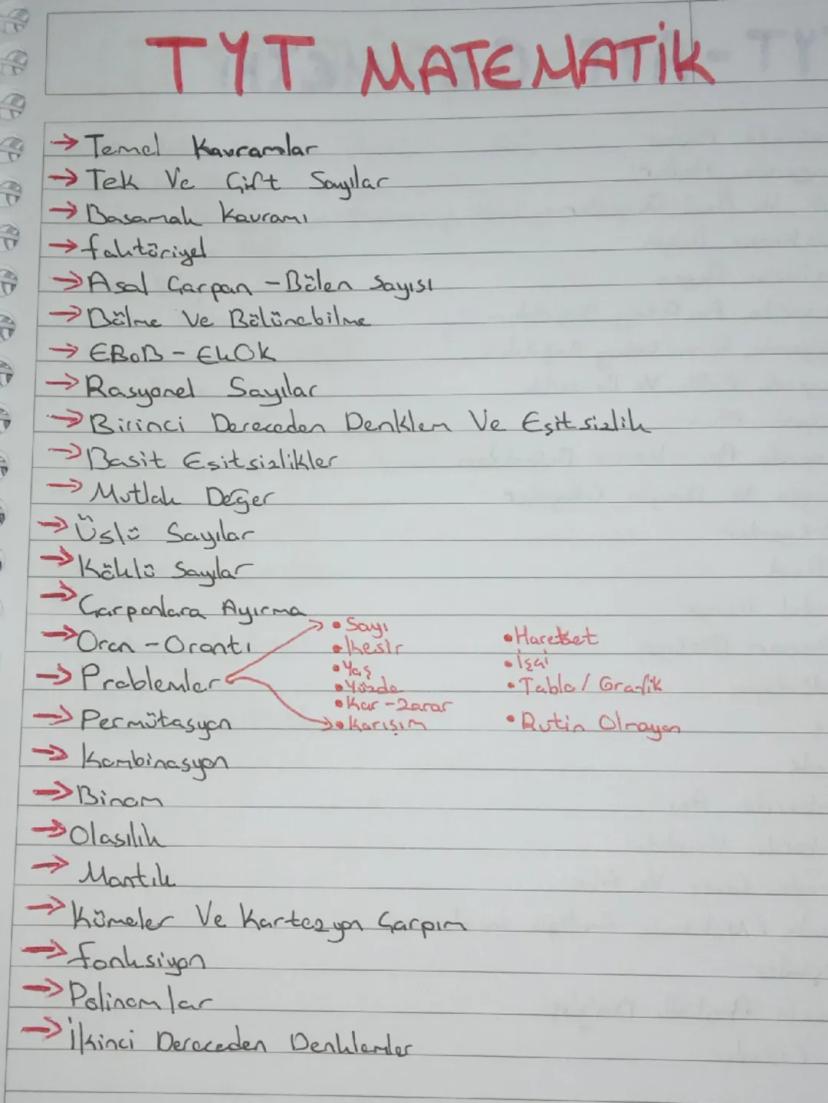 TYT MATEMATİK
→ Temel Kavramlar
→ Tek Ve Çift Sayılar
→ Basamak Kavramı
→ faktöriyel
→ Asal Çarpan - Bölen Sayısı
→ Bölme Ve Bölünebilme
→ EBOB - EKOK
→ Rasyonel Sayılar
→ Birinci Dereceden Denklem Ve Eşitsizlik
→ Basit Eşitsizlikler
→ Mutlak Değer
→ Üslü Sayılar
→ Köklü Sayılar
→ Çarpanlara Ayırma
→ Oran - Orantı
→ Problemler
• Sayı
• Kesir
• Yaş
• Yüzde
• Kar - Zarar
• Karışım
• Hareket
• İşçi
• Tablo / Grafik
• Rutin Olmayan
→ Permütasyon
→ Kombinasyon
→ Binom
→ Olasılık
→ Mantık
→ Kümeler Ve Kartezyen Çarpım
→ fonksiyon
→ Polinomlar
→ İkinci Dereceden Denklemler